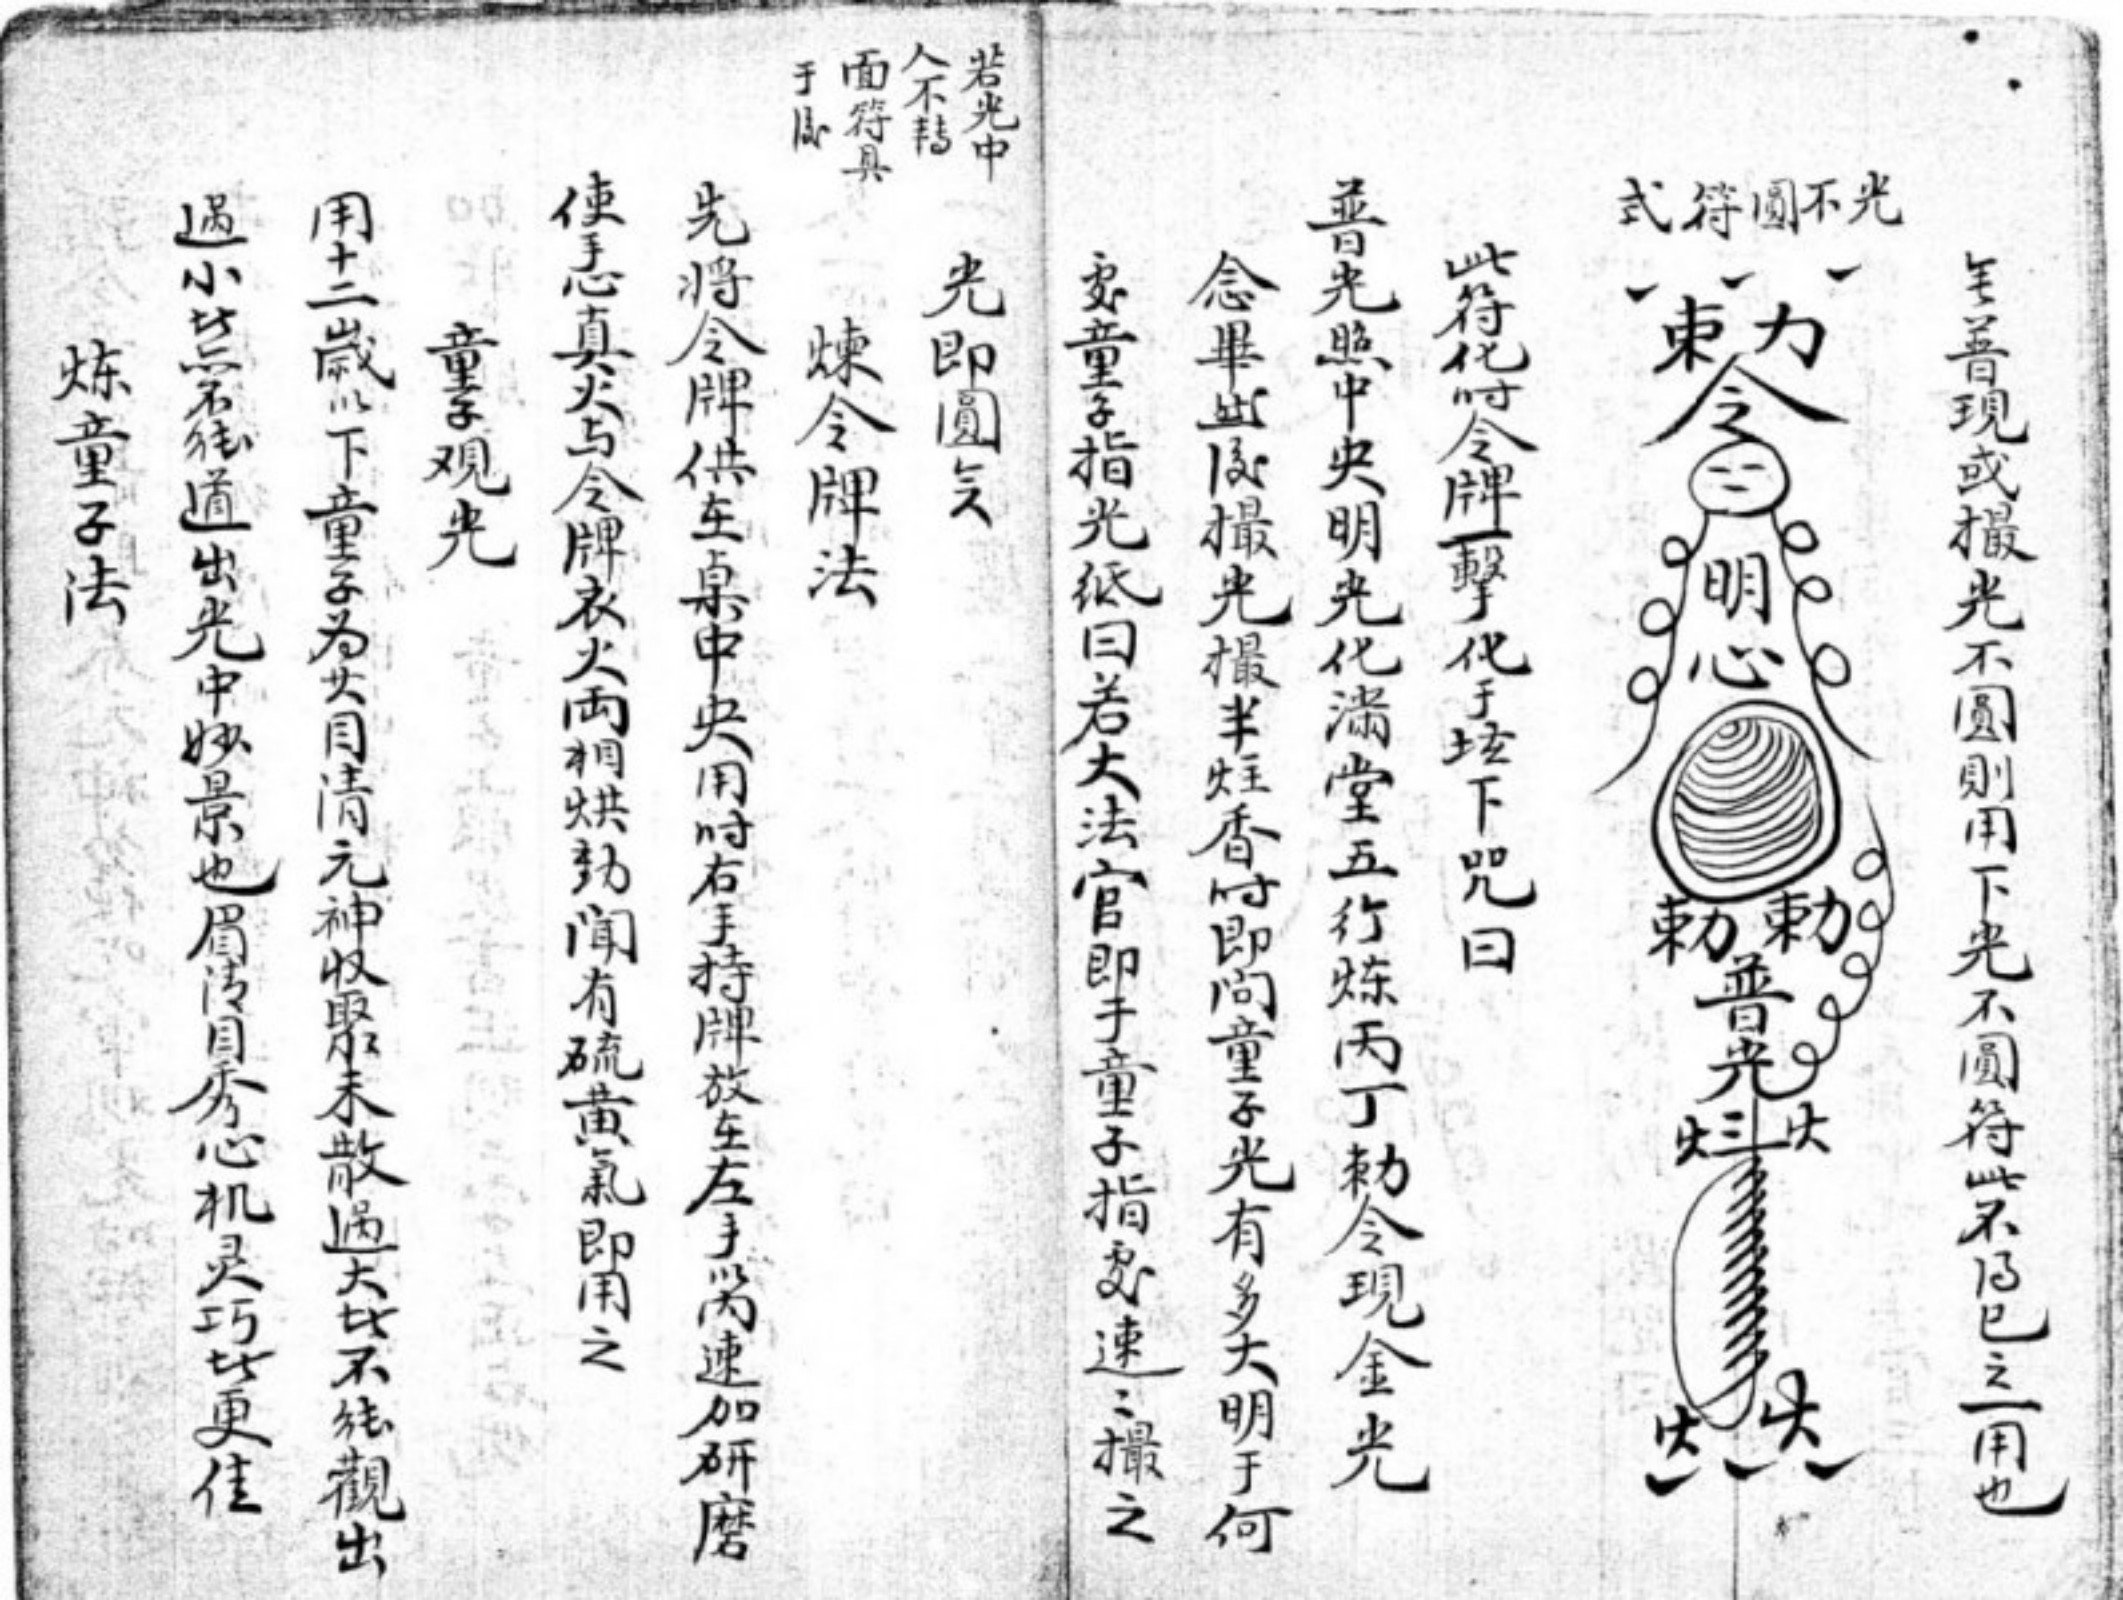 普現或撮光不圓則用下光不圓符此不得已之一用也
光不圓符式
敕
令
明
心
勅 勅
普光
火 三 火
火 火
此符化時令牌一擊化于坛下咒曰
普光照中央明光化满堂五行炼丙丁勅令現金光
念畢此後撮光撮半炷香时即问童子光有多大明于何
處童子指光纸曰若大法官即于童子指處速二撮之
若光中
人不轉
面符具
于後
光即圓矣
煉令牌法
先将令牌供在桌中央用时右手持牌放在左手 速加研磨
使手心真火与令牌衣火両相烘 闻有硫黄氣即用之
童子观光
用十二歲以下童子为其目清元神收聚未散過大者不能觀出
過小者 不能道出光中妙景也眉清目秀心机灵巧者更佳
炼童子法